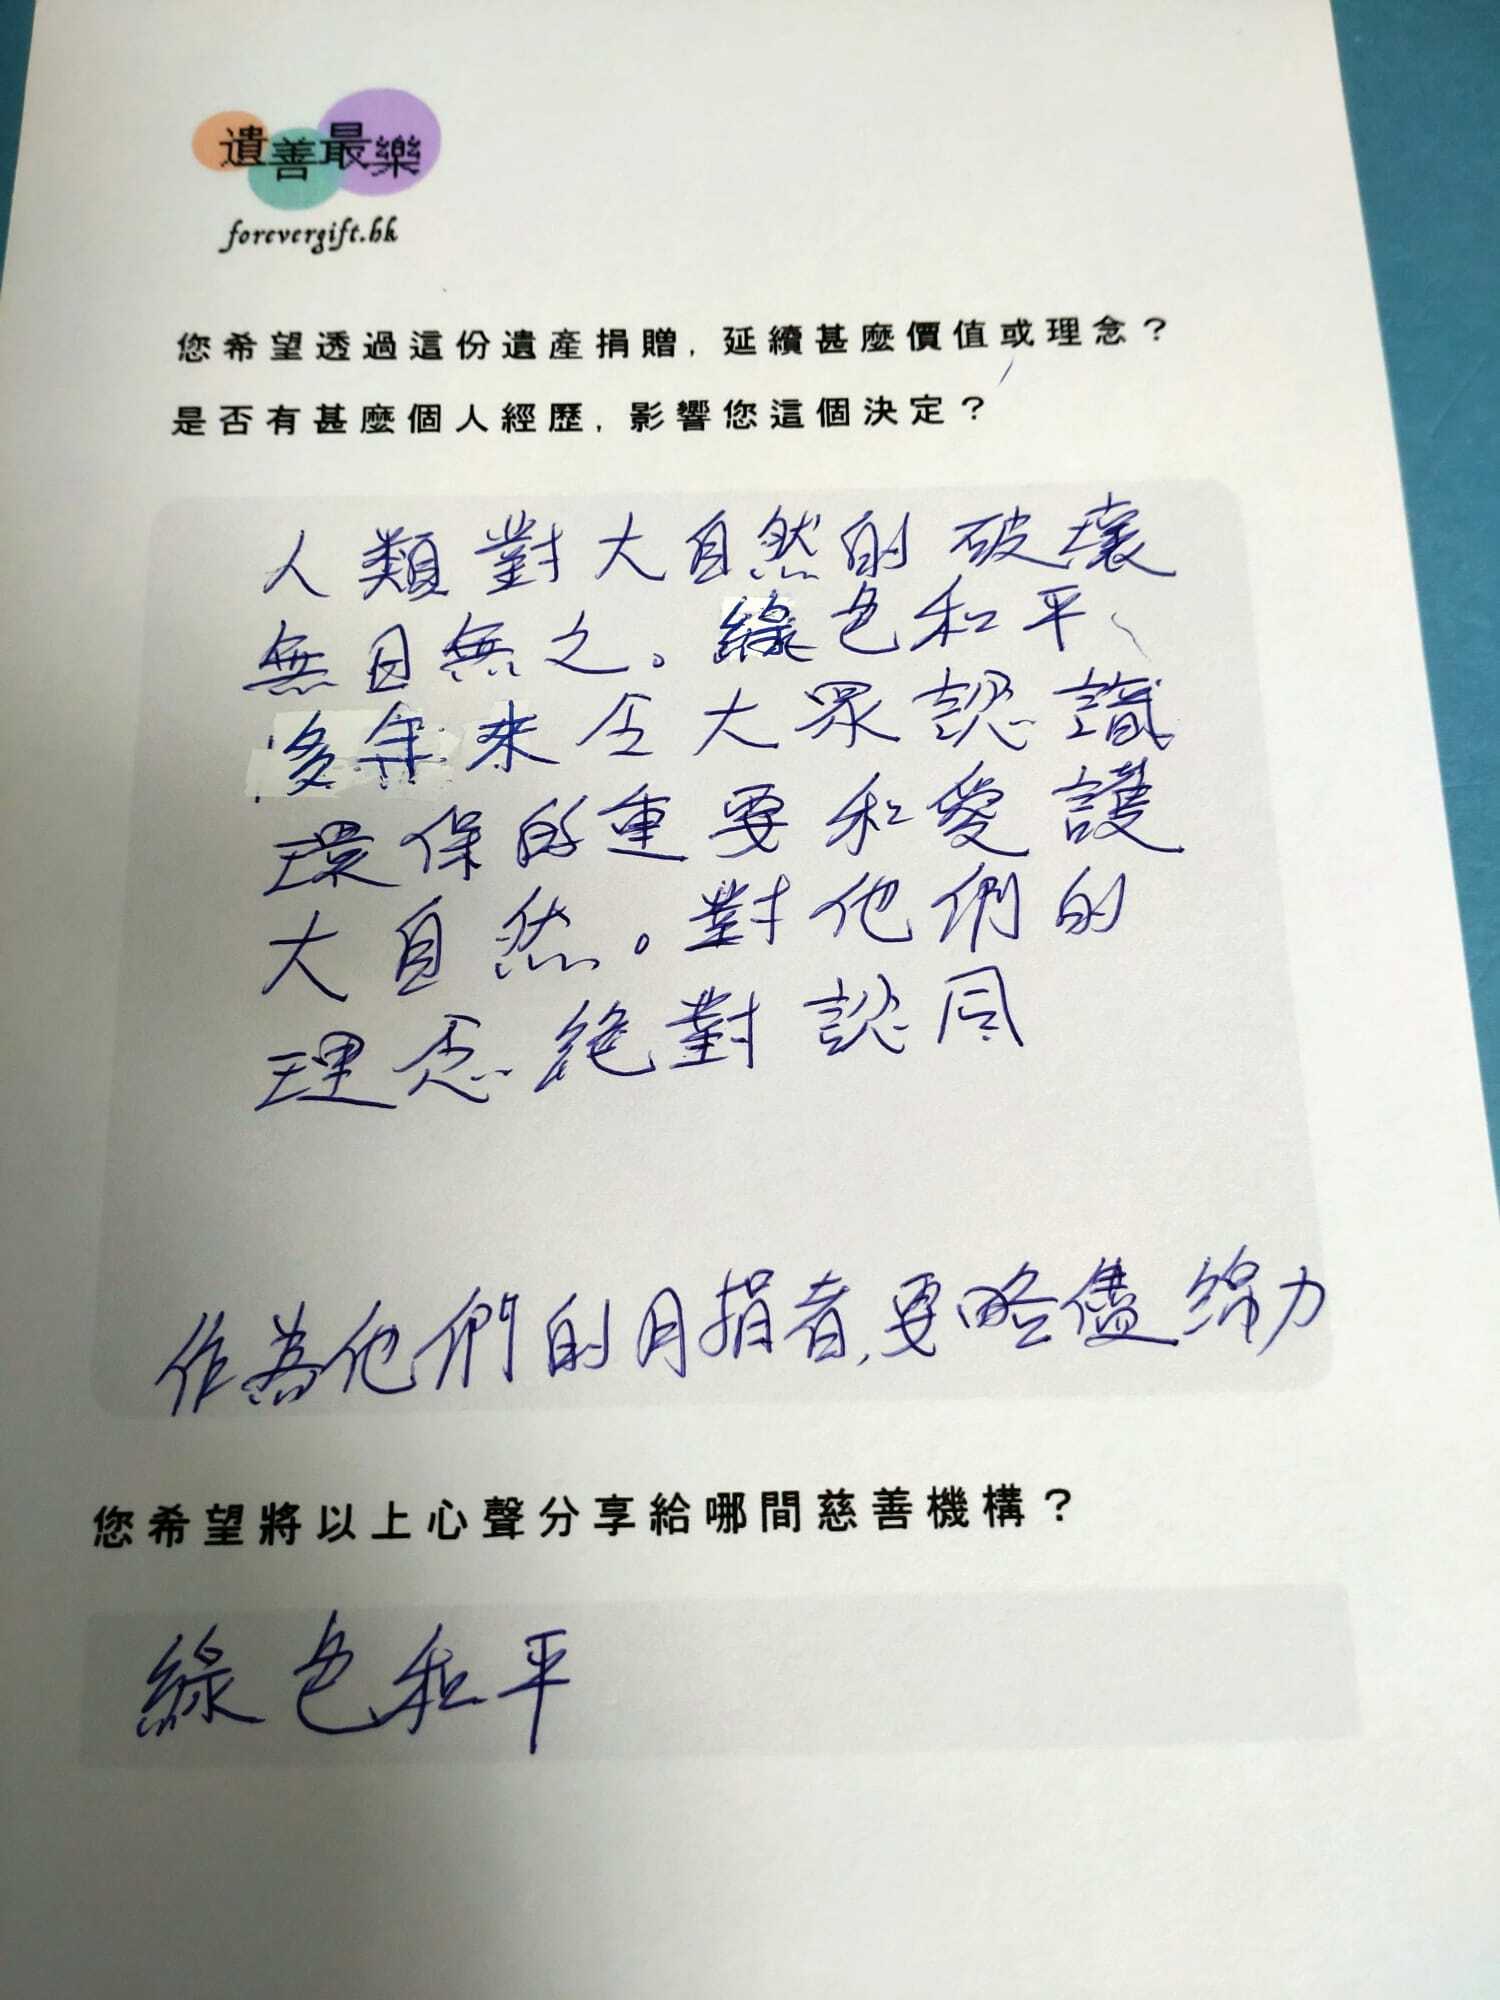 遺善最樂
forevergift.hk
您希望透過這份遺產捐贈，延續甚麼價值或理念？
是否有甚麼個人經歷，影響您這個決定？
人類對大自然的破壞
無日無之。綠色和平、
多年來令大眾認識
環保的重要和愛護
大自然。對他們的
理念絕對認同
作為他們的月捐者，要略儘綿力
您希望將以上心聲分享給哪間慈善機構？
綠色和平